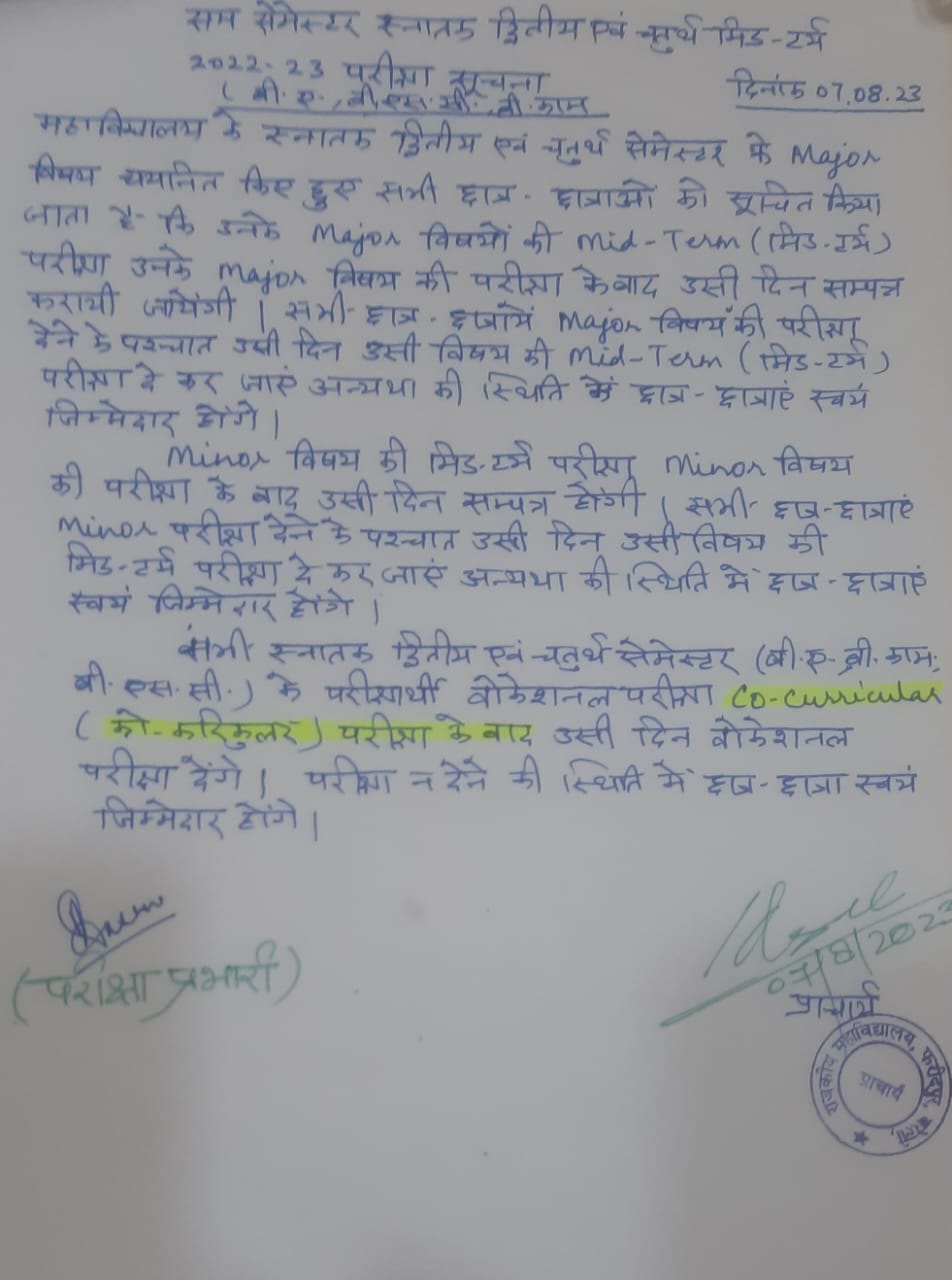 सम सेमेस्टर स्नातक द्वितीय एवं चतुर्थ मिड-टर्म
2022-23 परीक्षा सूचना
दिनांक 07.08.23
(बी.ए., बी.एस.सी. बी.काम
महाविद्यालय के स्नातक द्वितीय एवं चतुर्थ सेमेस्टर के Major
विषय चयनित किए हुए सभी छात्र-छात्राओं को सूचित किया
जाता है कि उनके Major विषयों की Mid-Term (मिड-टर्म)
परीक्षा उनके Major विषय की परीक्षा के बाद उसी दिन सम्पन्न
करायी जायेंगी। सभी छात्र-छात्रायें Major विषय की परीक्षा
देने के पश्चात उसी दिन उसी विषय की Mid-Term (मिड-टर्म)
परीक्षा दे कर जाएं अन्यथा की स्थिति में छात्र-छात्राएं स्वयं
जिम्मेदार होंगे।
Minor विषय की मिड-टर्म परीक्षा Minor विषय
की परीक्षा के बाद उसी दिन सम्पन्न होंगी। सभी छात्र-छात्राएं
Minor परीक्षा देने के पश्चात उसी दिन उसी विषय की
मिड-टर्म परीक्षा दे कर जाएं अन्यथा की स्थिति में छात्र-छात्राएं
स्वयं जिम्मेदार होंगे।
सभी स्नातक द्वितीय एवं चतुर्थ सेमेस्टर (बी.ए. बी.काम,
बी.एस.सी.) के परीक्षार्थी वोकेशनल परीक्षा Co-Curricular
(को-करिकुलर) परीक्षा के बाद उसी दिन वोकेशनल
परीक्षा देंगे। परीक्षा न देने की स्थिति में छात्र-छात्रा स्वयं
जिम्मेदार होंगे।
(परीक्षा प्रभारी)
07/8/2023
प्राचार्य
राजकीय महाविद्यालय, फरीदपुर, बरेली
प्राचार्य